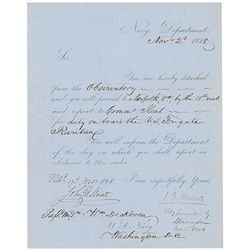 Navy Department,
Nov. 2d 1848
Sir,
You are hereby detached
from the Observatory
and you will proceed to Norfolk, Va. by the 15th inst
and report to Comm. Sloat
for duty on board the U.S. Frigate
Raritan
You will inform the Department
of the day on which you shall report in
obedience to this order.
I am respectfully Yours
Nov 1848
John D. Sloat
J. Y. Mason
Wm DeKoven
U. S. Navy
Washington D.C.